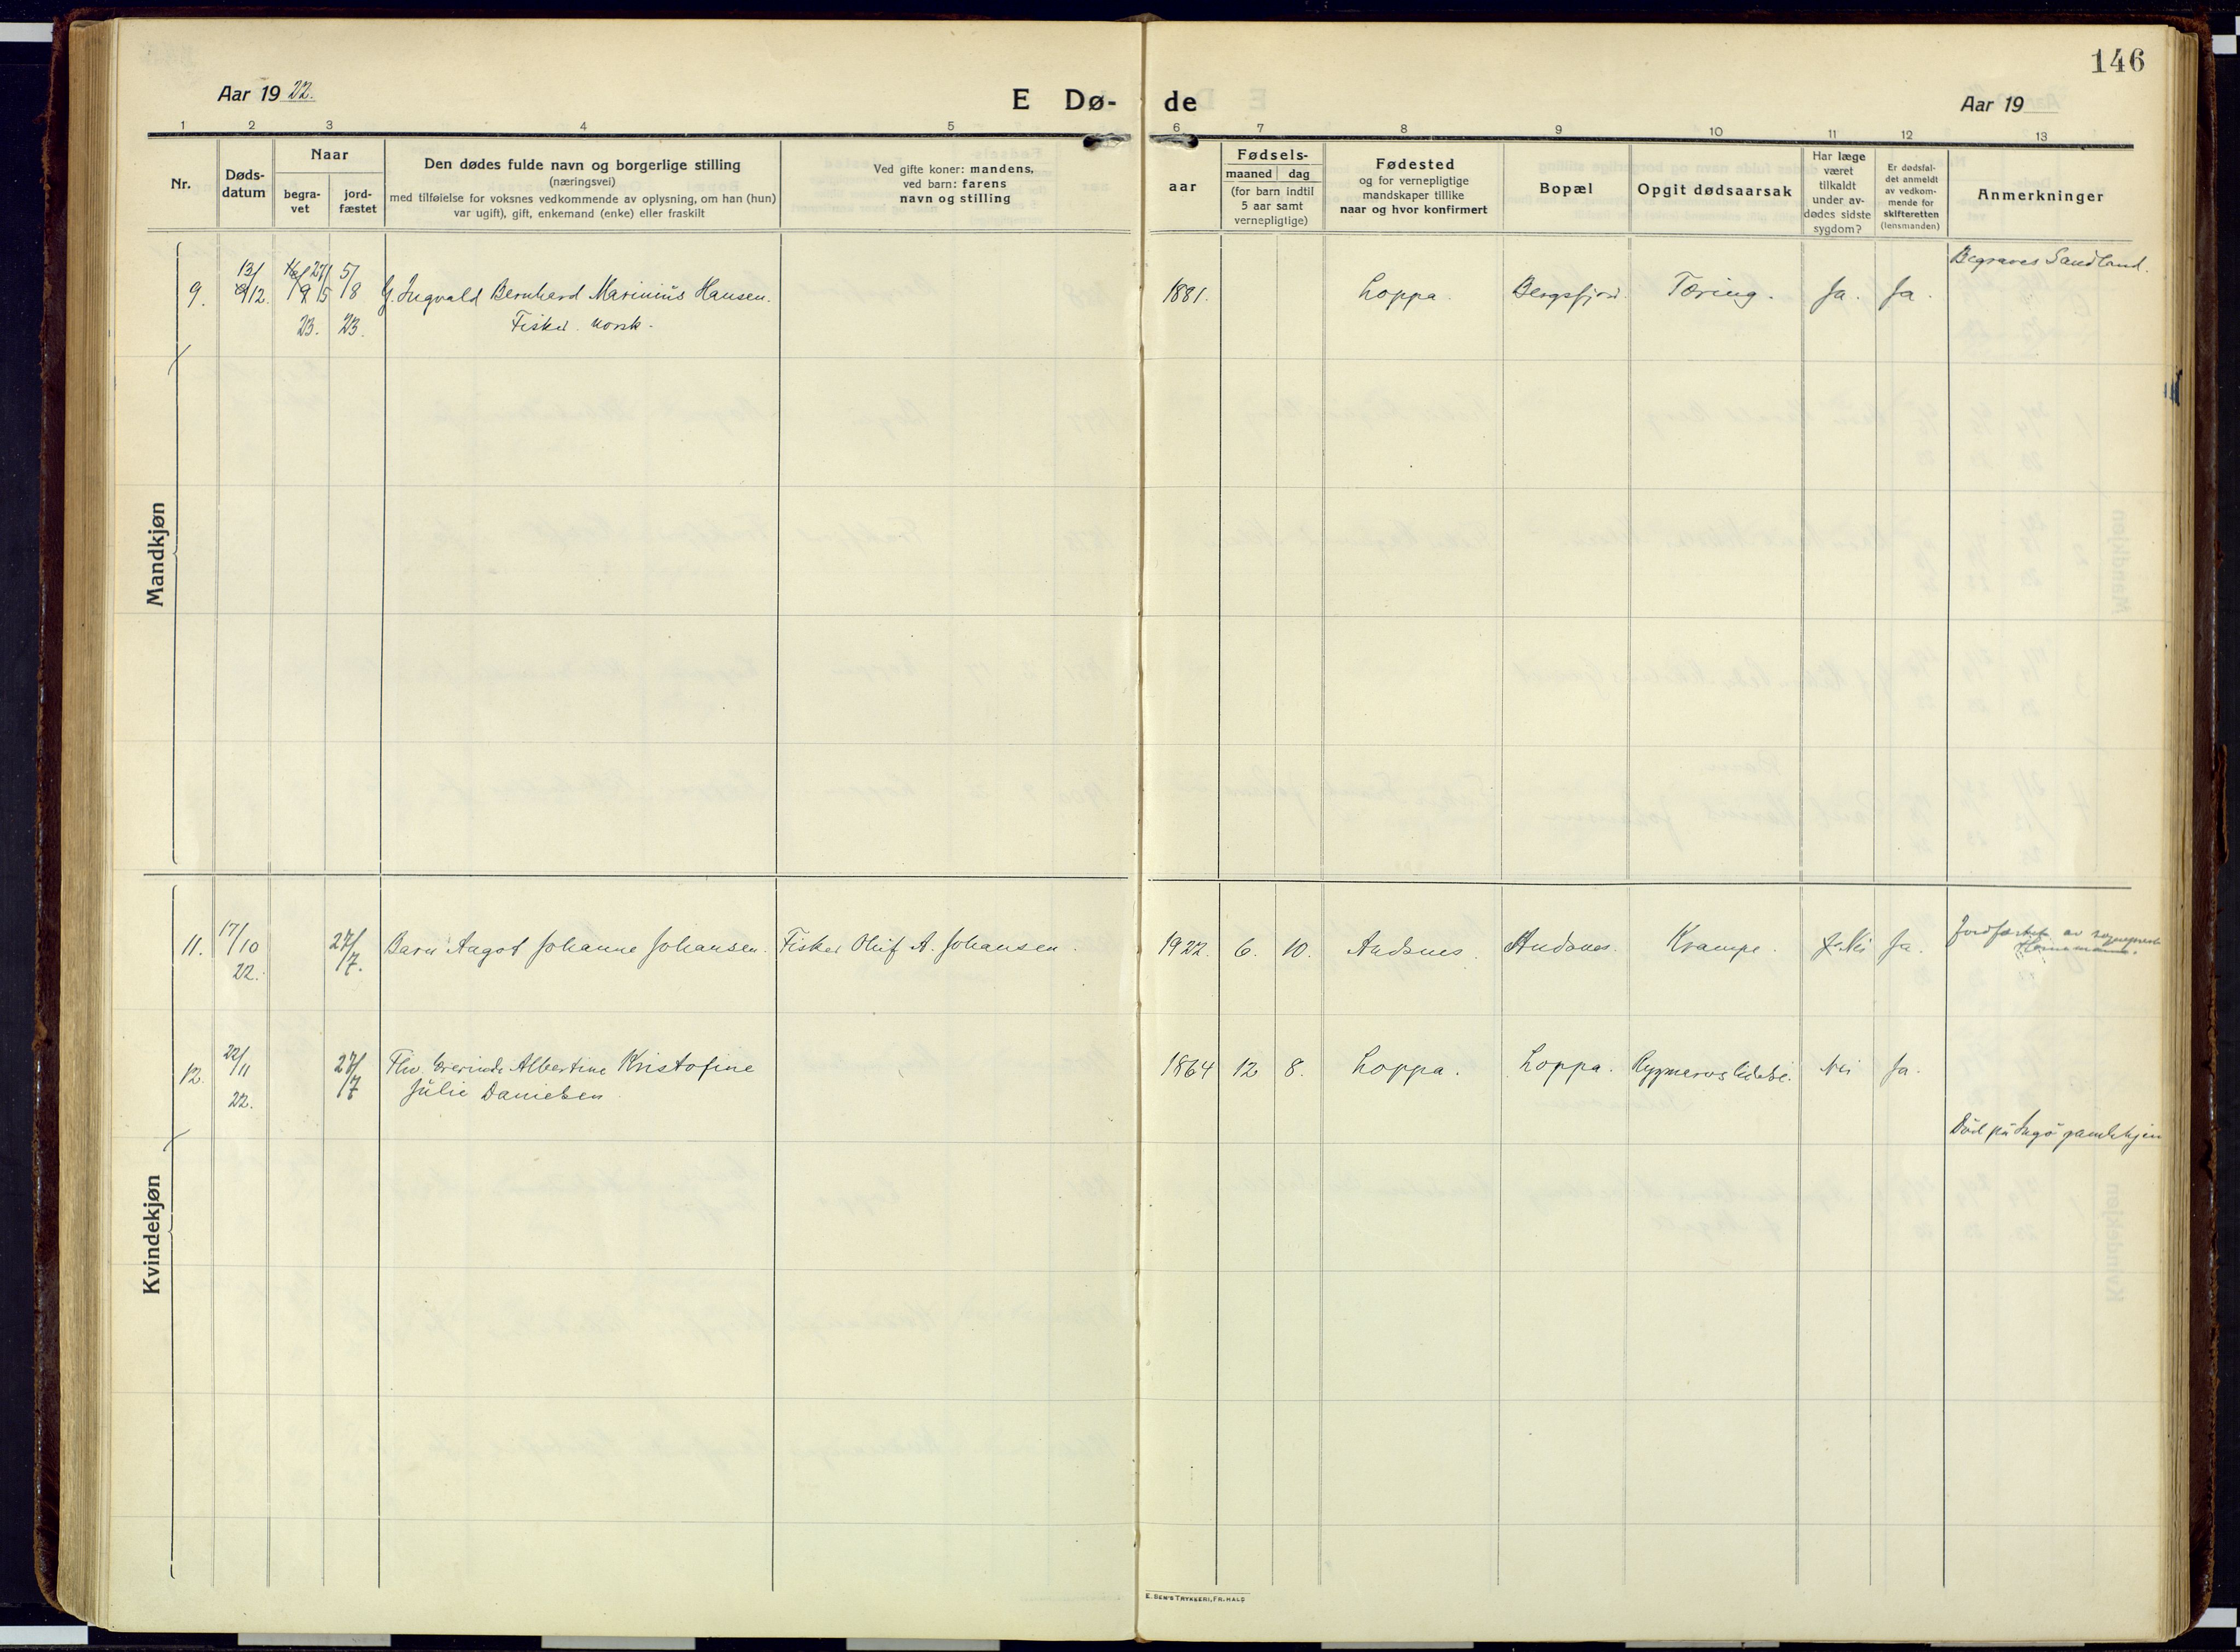 146
Aar 19 22.
E Dø-
de
Aar 19
1 2 3 4 5 6 7 8 9 10 11 12 13
Nr.
Døds-
datum
Naar
begra-
vet
jord-
fæstet
Den dødes fulde navn og borgerlige stilling
(næringsvei)
med tilføielse for voksnes vedkommende av oplysning, om han (hun)
var ugift), gift, enkemand (enke) eller fraskilt
Ved gifte koner: mandens,
ved barn: farens
navn og stilling
aar
Fødsels-
maaned dag
(for barn indtil
5 aar samt
vernepligtige)
Fødested
og for vernepligtige
mandskaper tillike
naar og hvor konfirmert
Bopæl
Opgit dødsaarsak
Har læge
været
tilkaldt
under av-
dødes sidste
sygdom?
Er dødsfal-
det anmeldt
av vedkom-
mende for
skifteretten
(lensmanden)
Anmerkninger
Mandkjøn
Begraves Sandland.
9. 13/12. 27/5 5/8 G. Ingvald Bernhard Marinius Hansen. 1881. Loppa. Bergsfjord. Tæring. Ja. Ja.
23. 23. Fisker. norsk.
Kvindekjøn
11. 17/10 27/7. Barn Aagot Johanne Johansen. Fisker Oluf A. Johansen. 1922. 6. 10. Andsnes. Andsnes. Krampe. Nei Ja. Jordfæstet av sogneprest
22.
12. 22/11 27/7 Albertine Kristofine 1864 12 8. Loppa. Loppa. Nei Ja.
22. Julie Danielsen
Død på Ingø gamlehjem
E. SEM'S TRYKKERI, FR. HALD